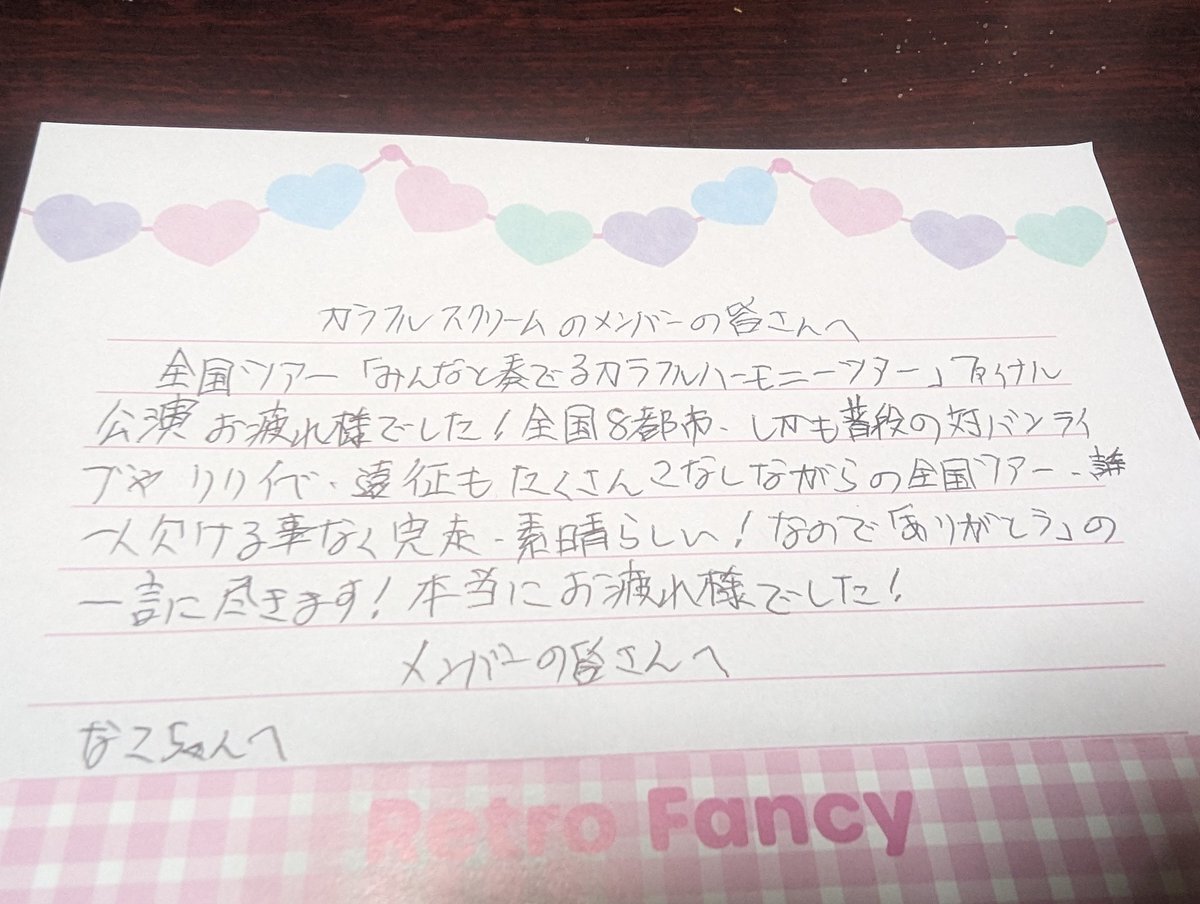 カラフルスクリームのメンバーの皆さんへ
全国ツアー「みんなと奏でるカラフルハーモニーツアー」ファイナル
公演お疲れ様でした!全国8都市、しかも普段の対バンライ
ブやリリイベ、遠征もたくさんこなしながらの全国ツアー、誰
一人欠ける事なく完走、素晴らしい!なので「ありがとう」の
一言に尽きます!本当にお疲れ様でした!
メンバーの皆さんへ
なこちゃんへ
Retro Fancy